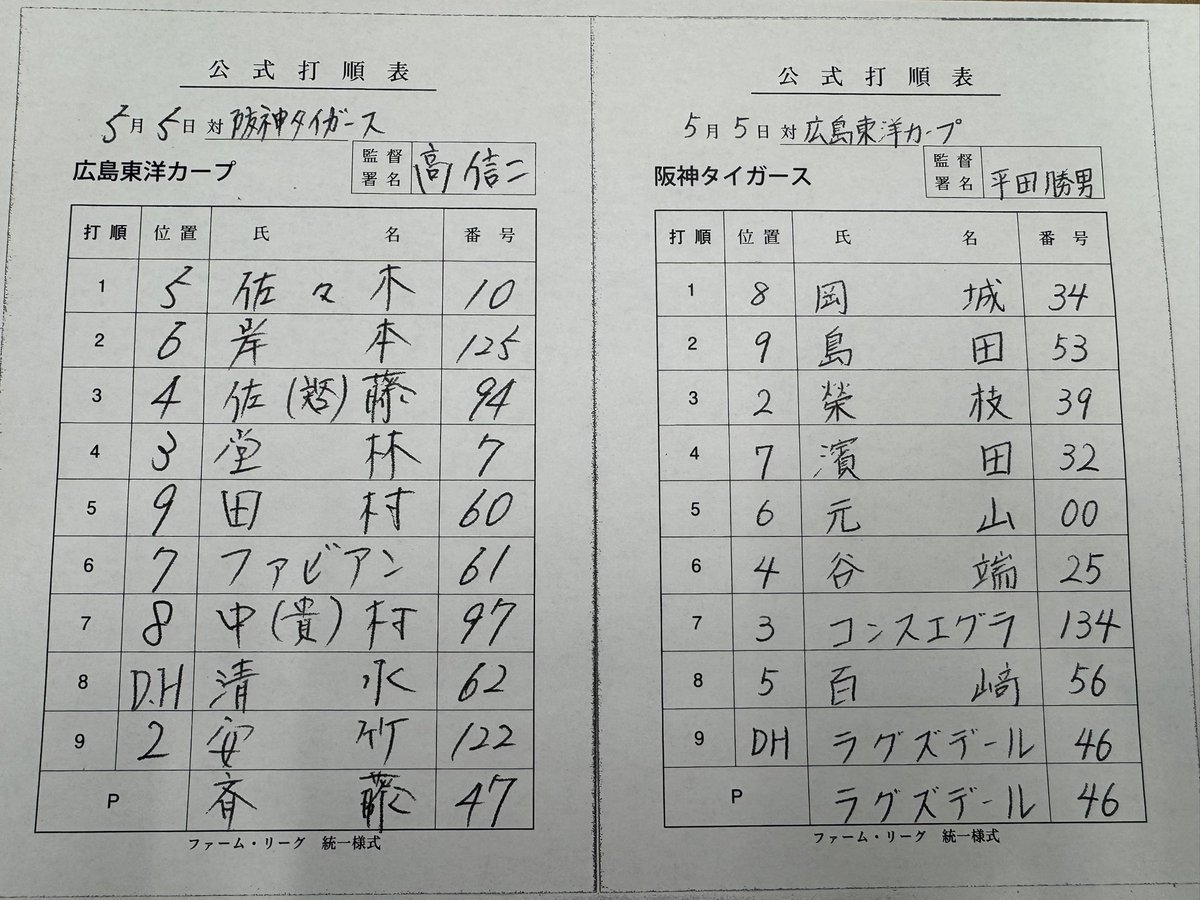 公式打順表
5月5日対阪神タイガース
広島東洋カープ 監督署名 高信二
打順 位置 氏名 番号
1 5 佐々木 10
2 6 岸本 125
3 4 佐(啓)藤 94
4 3 堂林 7
5 9 田村 60
6 7 ファビアン 61
7 8 中(貴)村 97
8 D.H 清水 62
9 2 安竹 122
P 斉藤 47
ファーム・リーグ 統一様式
公式打順表
5月5日対広島東洋カープ
阪神タイガース 監督署名 平田勝男
打順 位置 氏名 番号
1 8 岡城 34
2 9 島田 53
3 2 榮枝 39
4 7 濱田 32
5 6 元山 00
6 4 谷端 25
7 3 コンスエグラ 134
8 5 百﨑 56
9 DH ラグズデール 46
P ラグズデール 46
ファーム・リーグ 統一様式